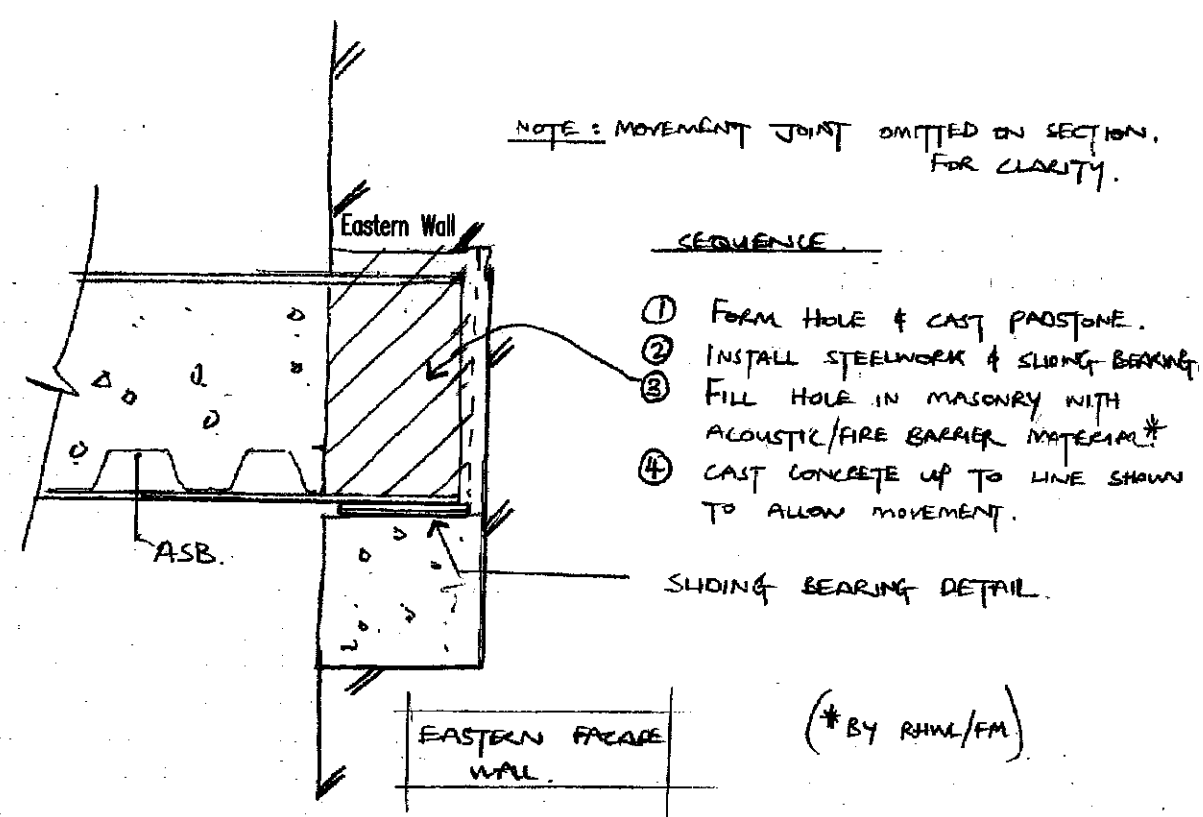 NOTE : MOVEMENT JOINT OMITTED ON SECTION.
FOR CLARITY.
Eastern Wall
SEQUENCE.
① FORM HOLE & CAST PADSTONE.
② INSTALL STEELWORK & SLIDING BEARING.
③ FILL HOLE IN MASONRY WITH
ACOUSTIC/FIRE BARRIER MATERIAL*
④ CAST CONCRETE UP TO LINE SHOWN
TO ALLOW MOVEMENT.
ASB.
SLIDING BEARING DETAIL.
EASTERN FACADE
WALL.
(* BY RHWL/FM)